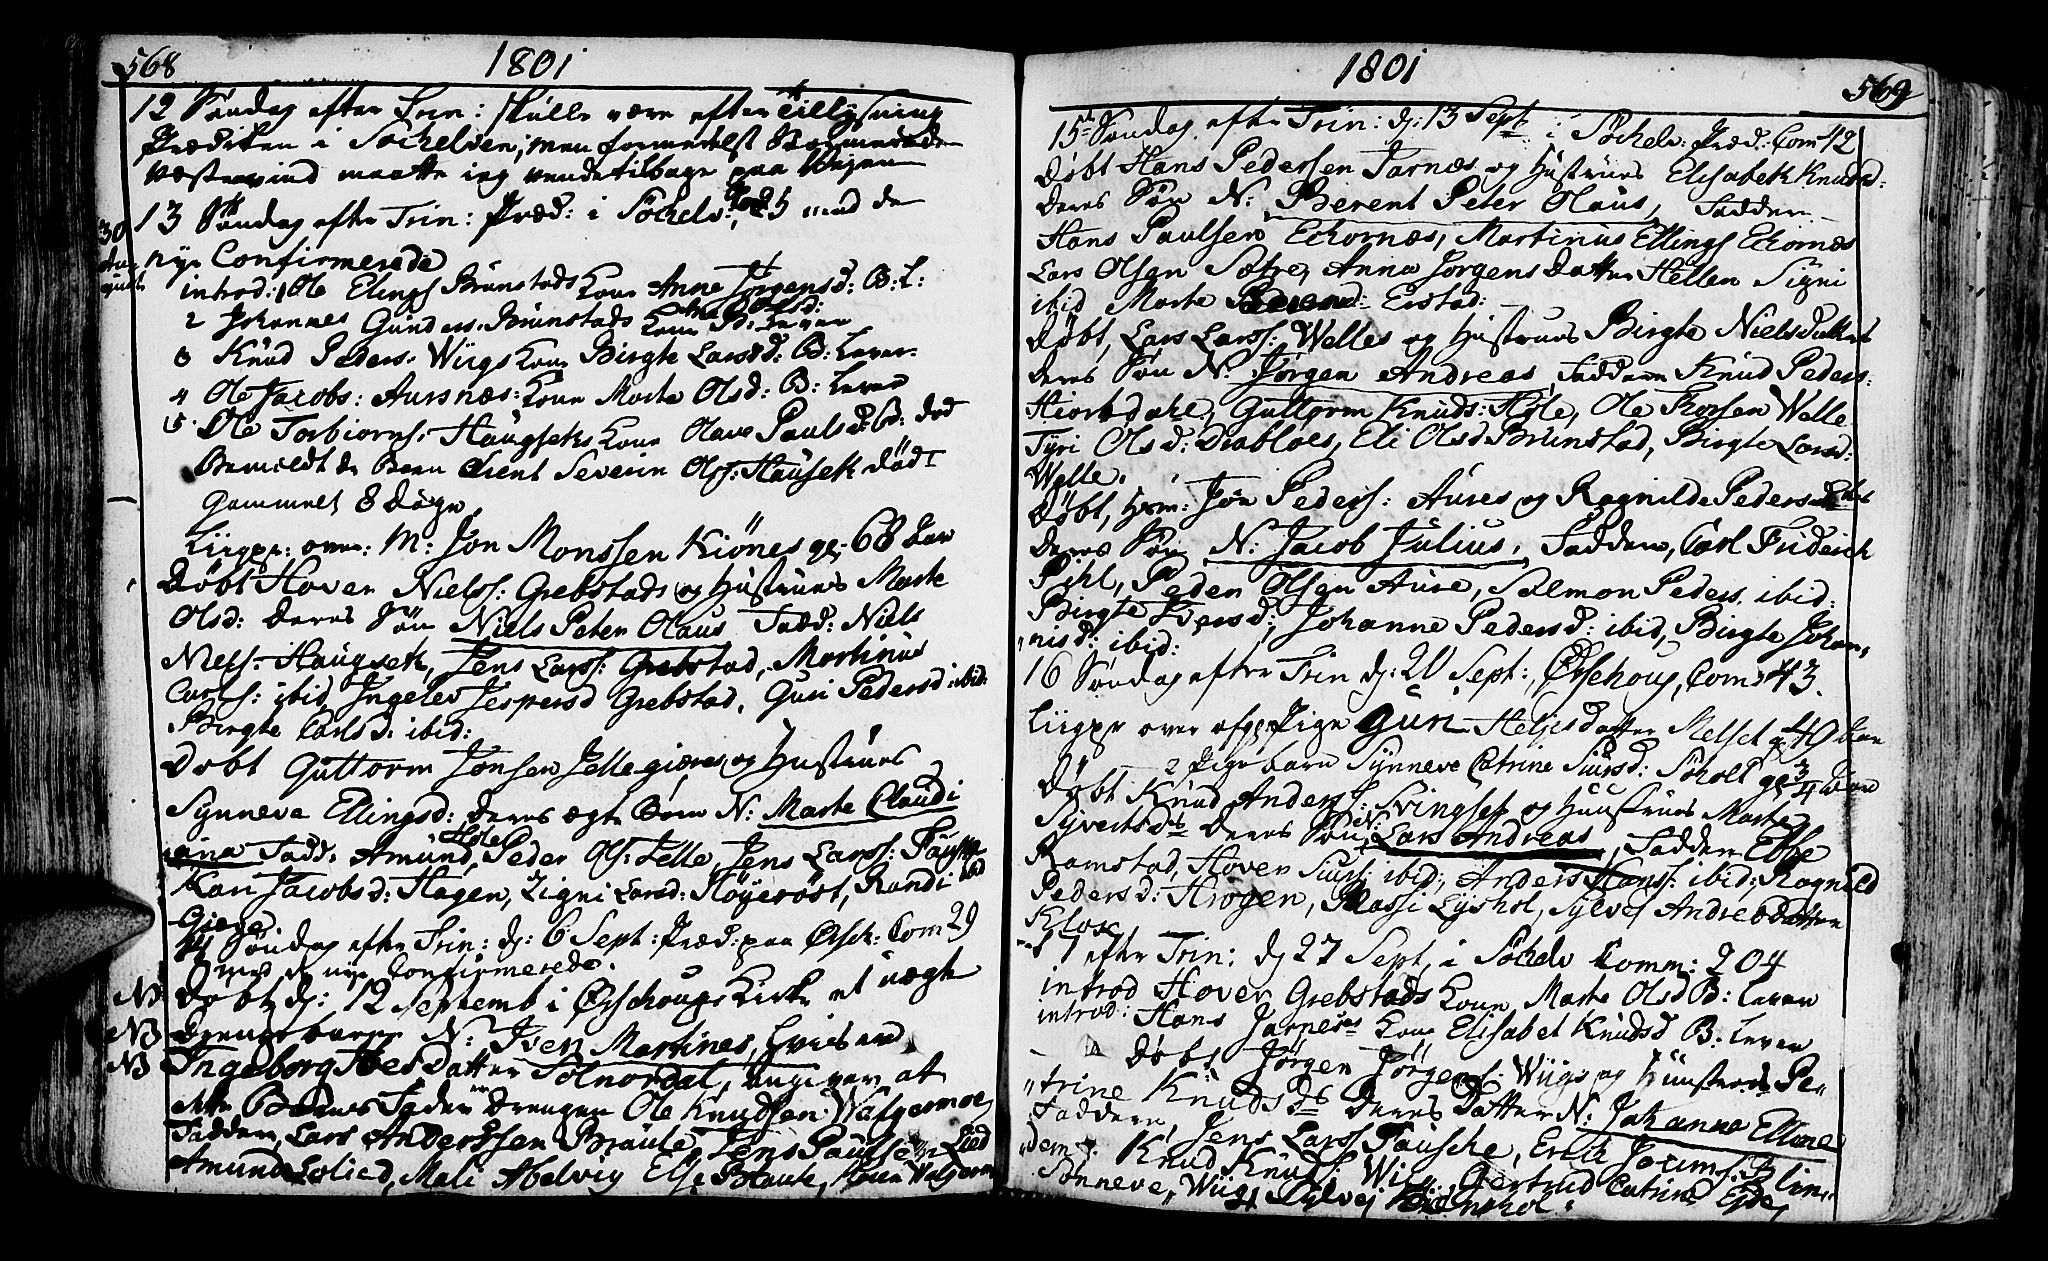 568
1801
12 Søndag efter Trin: skulle være efter Tillysning
Prædiken i Sochelven, men formedelst Stormende
væstenvind maatte ieg vende tilbage paa Veyen
30 13 Søndag efter Trin: Præd: i Sochelv: 25 med de
nye Confirmerede
introd: 1 Ole Elings Brunstads Kone Anne Jørgensd: B: L:
2 Johannes Gunders: Brunstads Kone Olsd: B: Lever
3 Knud Peders: Wiigs Kone Birgte Larsd: B: Lever
4 Ole Jacobs: Aursnæs: Kone Marte Olsd: B: Lever
5. Ole Torbiorns: Haugseks Kone Olave Paulsd: B: død
Bemeldte Barn Severin Ols: Hausek død
Gammel 8 Dage
Liigpr: over: M: Jon Monssen Kiönes ge: 68 Aar
Døbt Hover Niels: Grebstads og Hustrues Marte
Olsd: deres Søn Niels Peter Olaus Fadd: Niels
Niels: Haugsek, Jens Larss: Grebstad, Martinus
Carls: ibid, Ingelev Jespersd Grebstad, Guri Pedersd: ibid:
Birgte Carlsd: ibid:
Døbt Guttorm Jonsen Jelle giæres og Hustrues
Synneve Ellingsd: deres ægte Barn N: Marte Claudi
ana Fadd: Amund Hole, Peder Ols: Jelle, Jens Larss: Fauske
Kari Jacobsd: Hagen, Zigni Larsd: Høyerøst, Randi ibid
Giære
14 Søndag efter Trin: d: 6 Sept: Præd: paa Ørsch: Com 29
med de nye Confirmerede.
NB Døbt d: 12 Septemb i Ørschougs Kirke et uægte
NB drenge barn N: Iven Martines, hvis
NB Ingeborg Ives Datter Solnordal, angiver at
Barnes Fader er Drengen Ole Knudsen Walgermoe
Faddere, Lars Andersen Braute, Jens Paulsen Lied
Amund Lied, Mali Abelvig Else Braute, Walgerm
1801
569
15de Søndag efter Trin: d: 13 Sept i Sochelv: Præd: Com 42
Døbt Hans Pedersen Jarnæs og Hustrues Elisabeth Knudsd:
deres Søn N: Berent Peter Olaus, Faddere
Hans Paulsen Eckornæs, Martinus Ellings Ekornæs
Lars Olsen Sætre, Anna Jørgens Datter Hellen Signi
ibid Marte Erstad:
Døbt, Lars Larss: Welles og Hustrues Birgte Niels Datter
deres Søn N: Jørgen Andreas, Faddere Knud Peders:
Hiortdahl, Guttorm Knuds: Hole, Ole Welle
Tyri Olsd: Drabløes, Eli Olsd Brunstad, Birgte Larsd:
Welle.
Døbt, Jon Peders: Aures og Ragnilde Peders
deres Søn N: Jacob Julius, Faddere, Carl Friderich
Pihl, Peder Olsen Aure, Salmon Peders. ibid:
Birgte Iversd: Johanne Pedersd: ibid, Birgte Johan,
nisd: ibid:
16 Søndag efter Trin d: 20 Sept: Ørschoug, Com: 43.
Liigpr over Pige Guri Heljes datter Melset g: 40 Aar
2 Pige barn Synneve Catrine Siursd: Søholt ge: 3/4 Aar
Døbt Knud Anders: Svingset og Huustrues Marte
Syvertsdr deres Søn N: Lars Andreas, Faddere Ebbe
Ramstad, Hover Siurs: ibid:, Anders Hanss: ibid: Ragnild
Pedersd: Hrogen, Massi Lyshol, Sylvej Andreadatter
Klose
17 efter Trin: d 27 Sept, i Sochelv Comm: 204
introd Hover Grebstads Kone Marte Olsd B: Lever
introd: Hans Jarnes Kone Elisabet Knudsd B: Lever
Døbt Jørgen Jørgens: Wiigs og Huustrues Pe-
trine Knudsdr deres Datter N: Johanne Elline
Faddere, Jens Larss Fausche, Erik Joenms: Blin,
dem. Knud Knuds: Wiig, Gertrud Catrine Eyde,
Sønneve, Wiig Sylvej